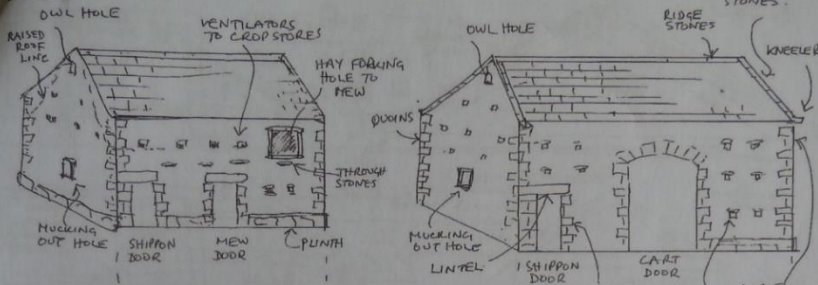 OWL HOLE
RAISED
ROOF
LINE
VENTILATORS
TO CROPSTORES
HAY FORKING
HOLE TO
MEW
THROUGH
STONES
MUCKING
OUT HOLE
SHIPPON
DOOR
MEW
DOOR
PLINTH
OWL HOLE
RIDGE
STONES
STONES.
KNEELER
QUOINS
MUCKING
OUT HOLE
LINTEL
SHIPPON
DOOR
CART
DOOR